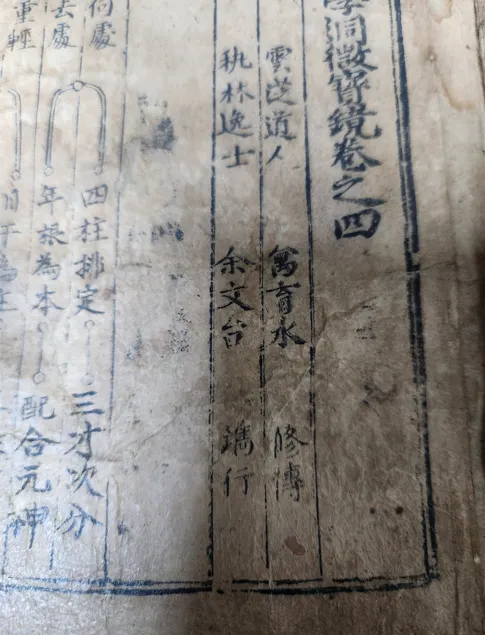 洞微寶鏡卷之四
雲道人 萬育水 修傳
林逸士 余文台 鐫行
四柱排定 三才次分
年根為本 配合元神
何處
去處
重輕